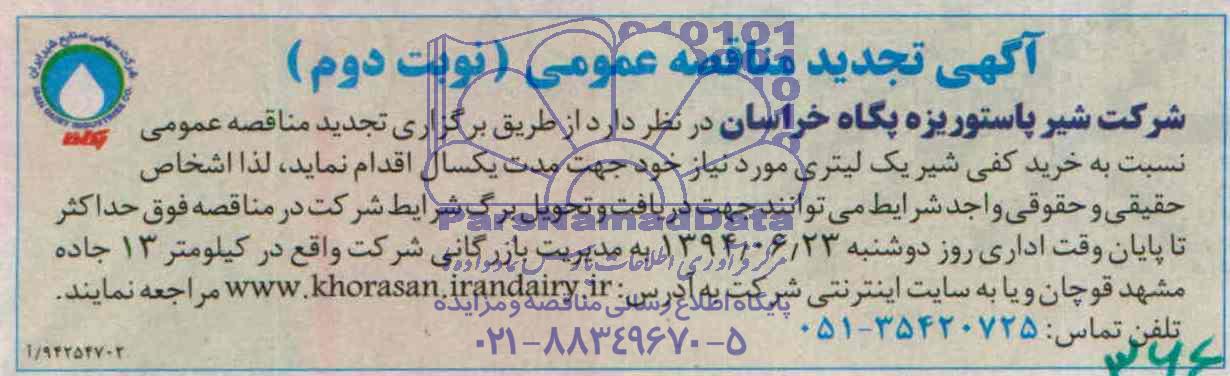 آگهی تجدید مناقصه عمومی (نوبت دوم)
شرکت شیر پاستوریزه پگاه خراسان در نظر دارد از طریق برگزاری تجدید مناقصه عمومی
نسبت به خرید کفی شیر یک لیتری مورد نیاز خود جهت مدت یکسال اقدام نماید، لذا اشخاص
حقیقی و حقوقی واجد شرایط می توانند جهت دریافت و تحویل برگ شرایط شرکت در مناقصه فوق حداکثر
تا پایان وقت اداری روز دوشنبه ۱۳۹۴/۰۶/۲۳ به مدیریت بازرگانی شرکت واقع در کیلومتر ۱۳ جاده
مشهد قوچان و یا به سایت اینترنتی شرکت به آدرس: www.khorasan.irandairy.ir مراجعه نمایند.
تلفن تماس: ۰۵۱-۳۵۴۲۰۷۲۵
۹۴۲۵۴۷۰۲/آ
شرکت سهامی صنایع شیر ایران
IRAN DAIRY INDUSTRIES CO.
پگاه
010101
ParsNamadData
پایگاه اطلاع رسانی مناقصه و مزایده
۰۲۱-۸۸۳۴۹۶۷۰-۵
۳۶۶